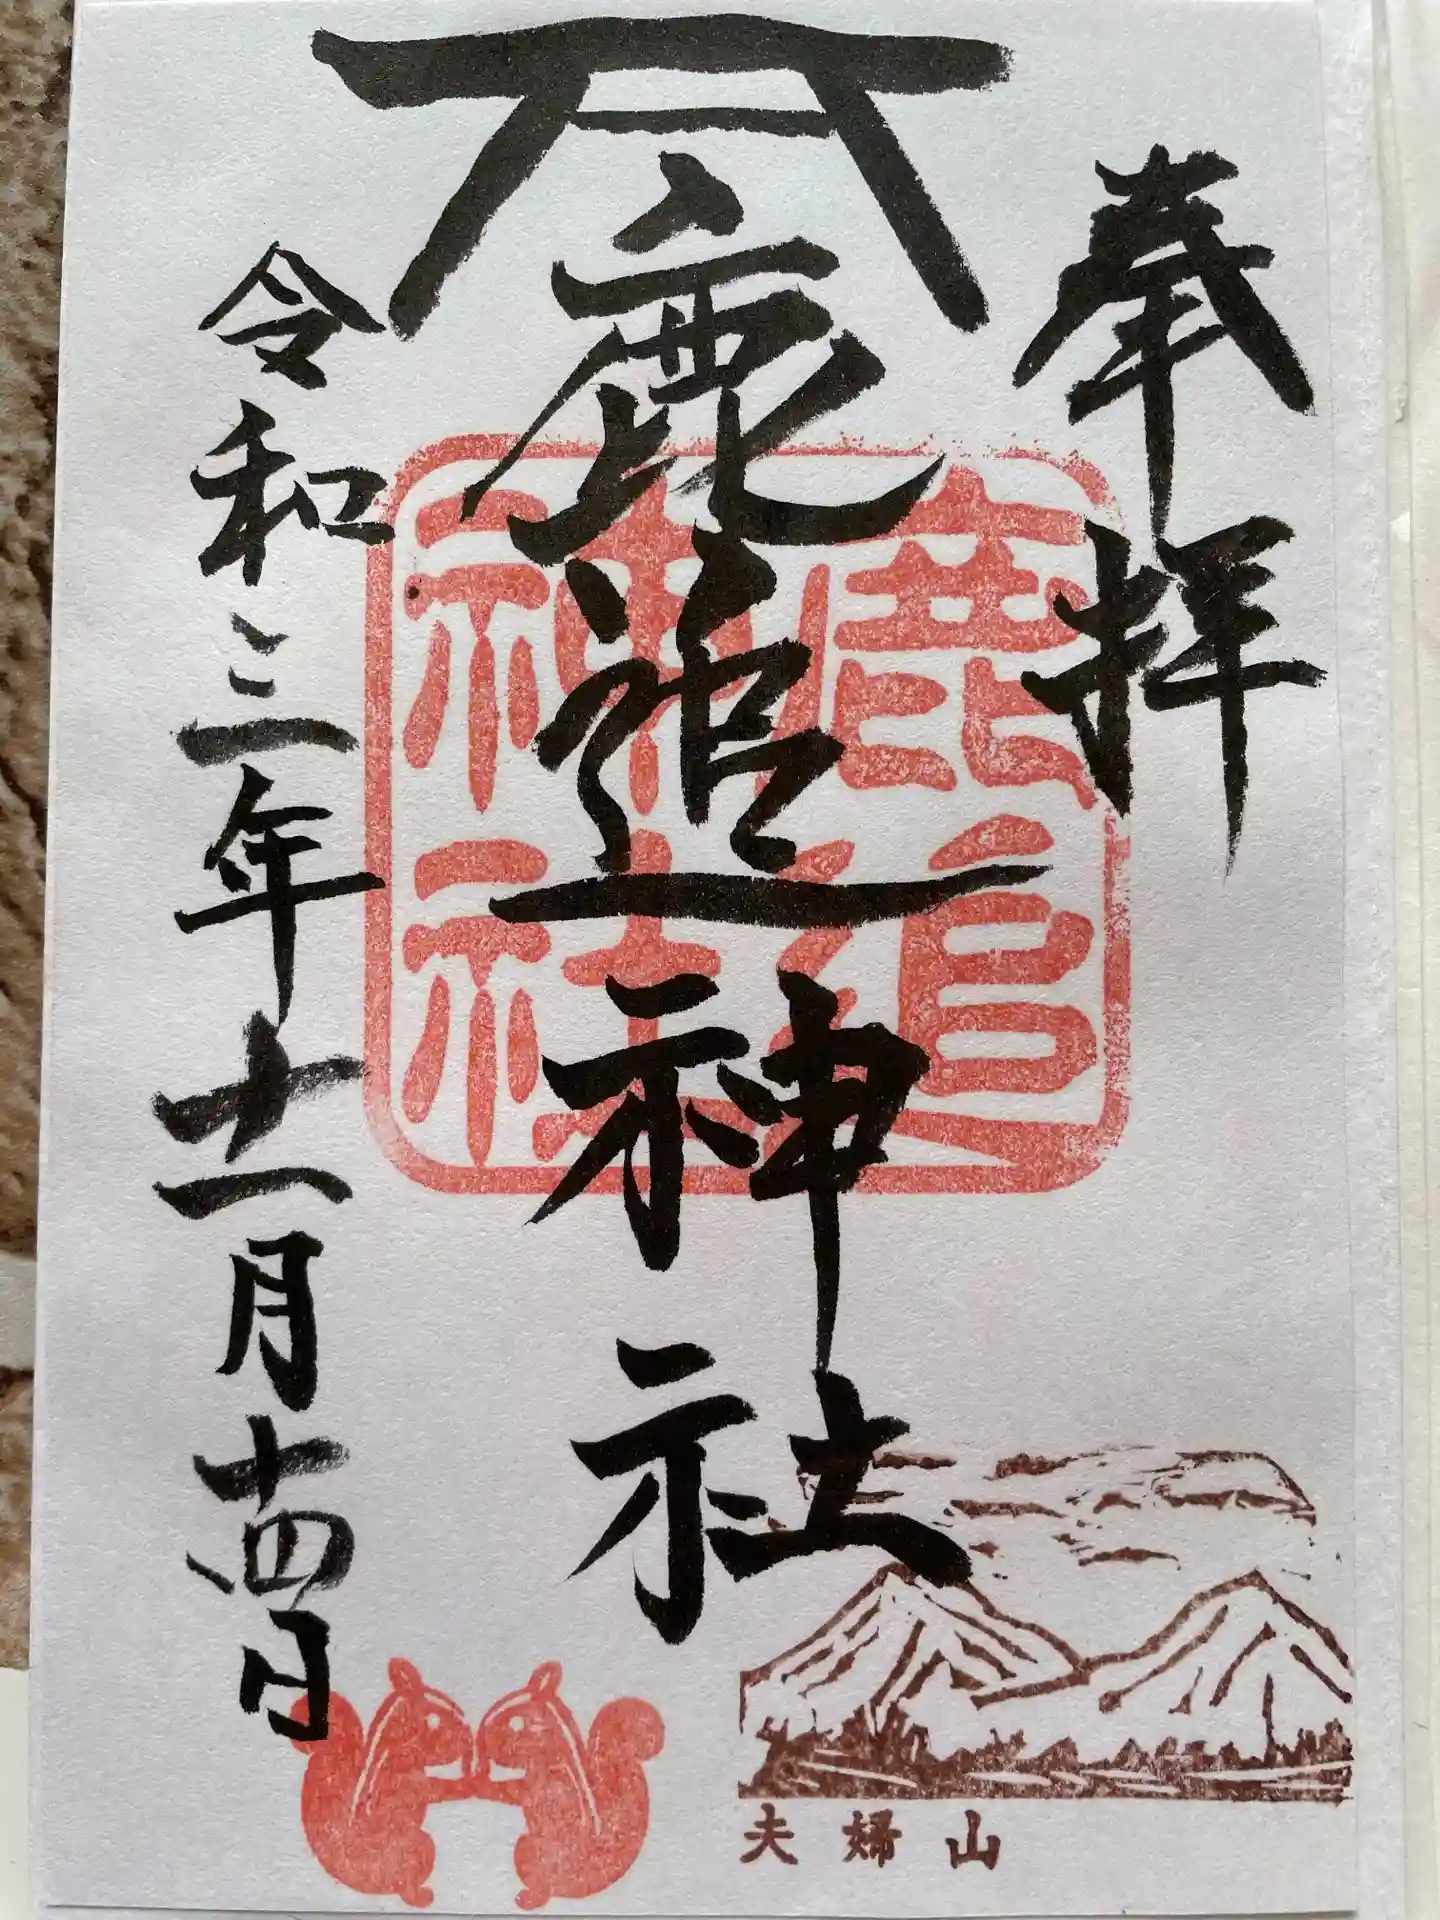 奉拝
鹿追神社
鹿追
神社
令和三年十一月十四日
夫婦山